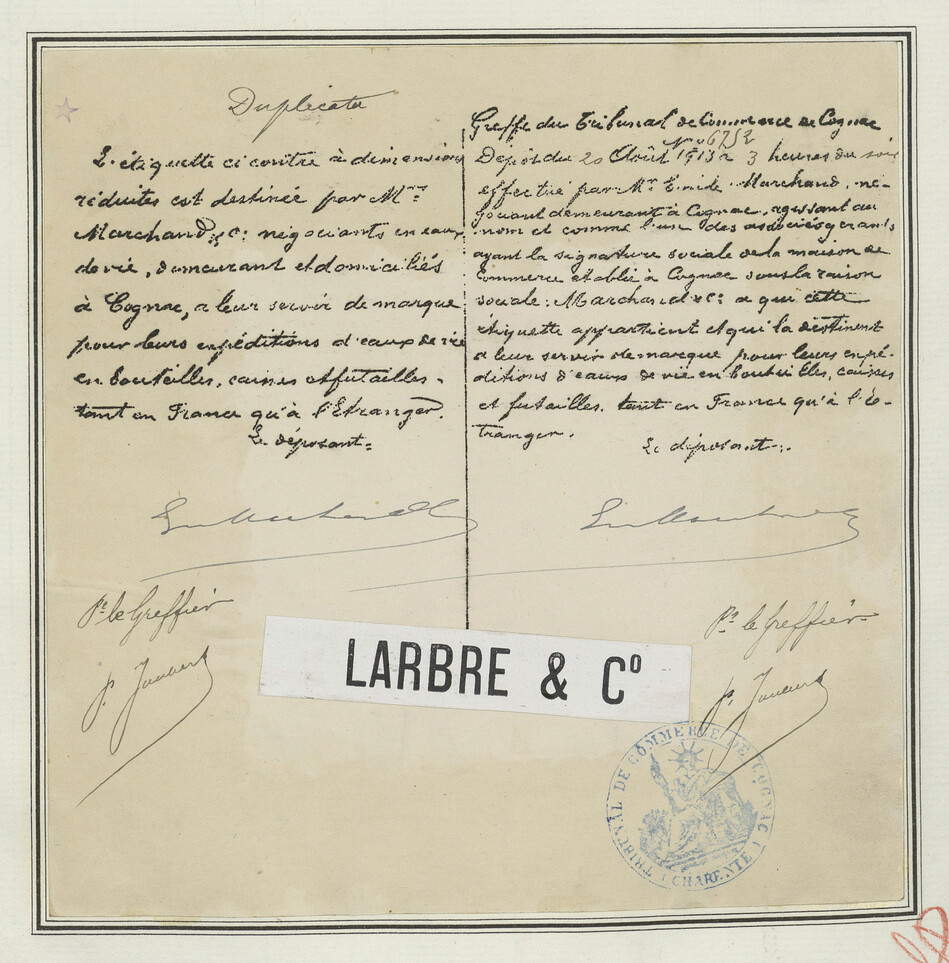 Duplicata
L'étiquette ci contre à dimensions
réduites est destinée par Mrs
Marchand & Cie négociants en eaux
de vie, demeurant et domiciliés
à Cognac, a leur servir de marque
pour leurs expéditions d'eaux de vie
en bouteilles, caisses et futailles.
tant en France qu'à l'Etranger.
Le déposant=
Pr le Greffier
Greffe du Tribunal de Commerce de Cognac
No 6752
Dépôt du 20 Août 1913 à 3 heures du soir
effectué par Mr Emile Marchand, né-
gociant demeurant à Cognac, agissant au
nom et comme l'un des associés gérants
ayant la signature sociale de la maison de
Commerce établie à Cognac sous la raison
sociale: Marchand & Cie a qui cette
étiquette appartient et qui la destinent
a leur servir de marque pour leurs expé-
ditions d'eaux de vie en bouteilles, caisses
et futailles. tant en France qu'à l'é-
tranger.
Le déposant
Pr le Greffier
LARBRE & Co
TRIBUNAL DE COMMERCE DE COGNAC
(CHARENTE)